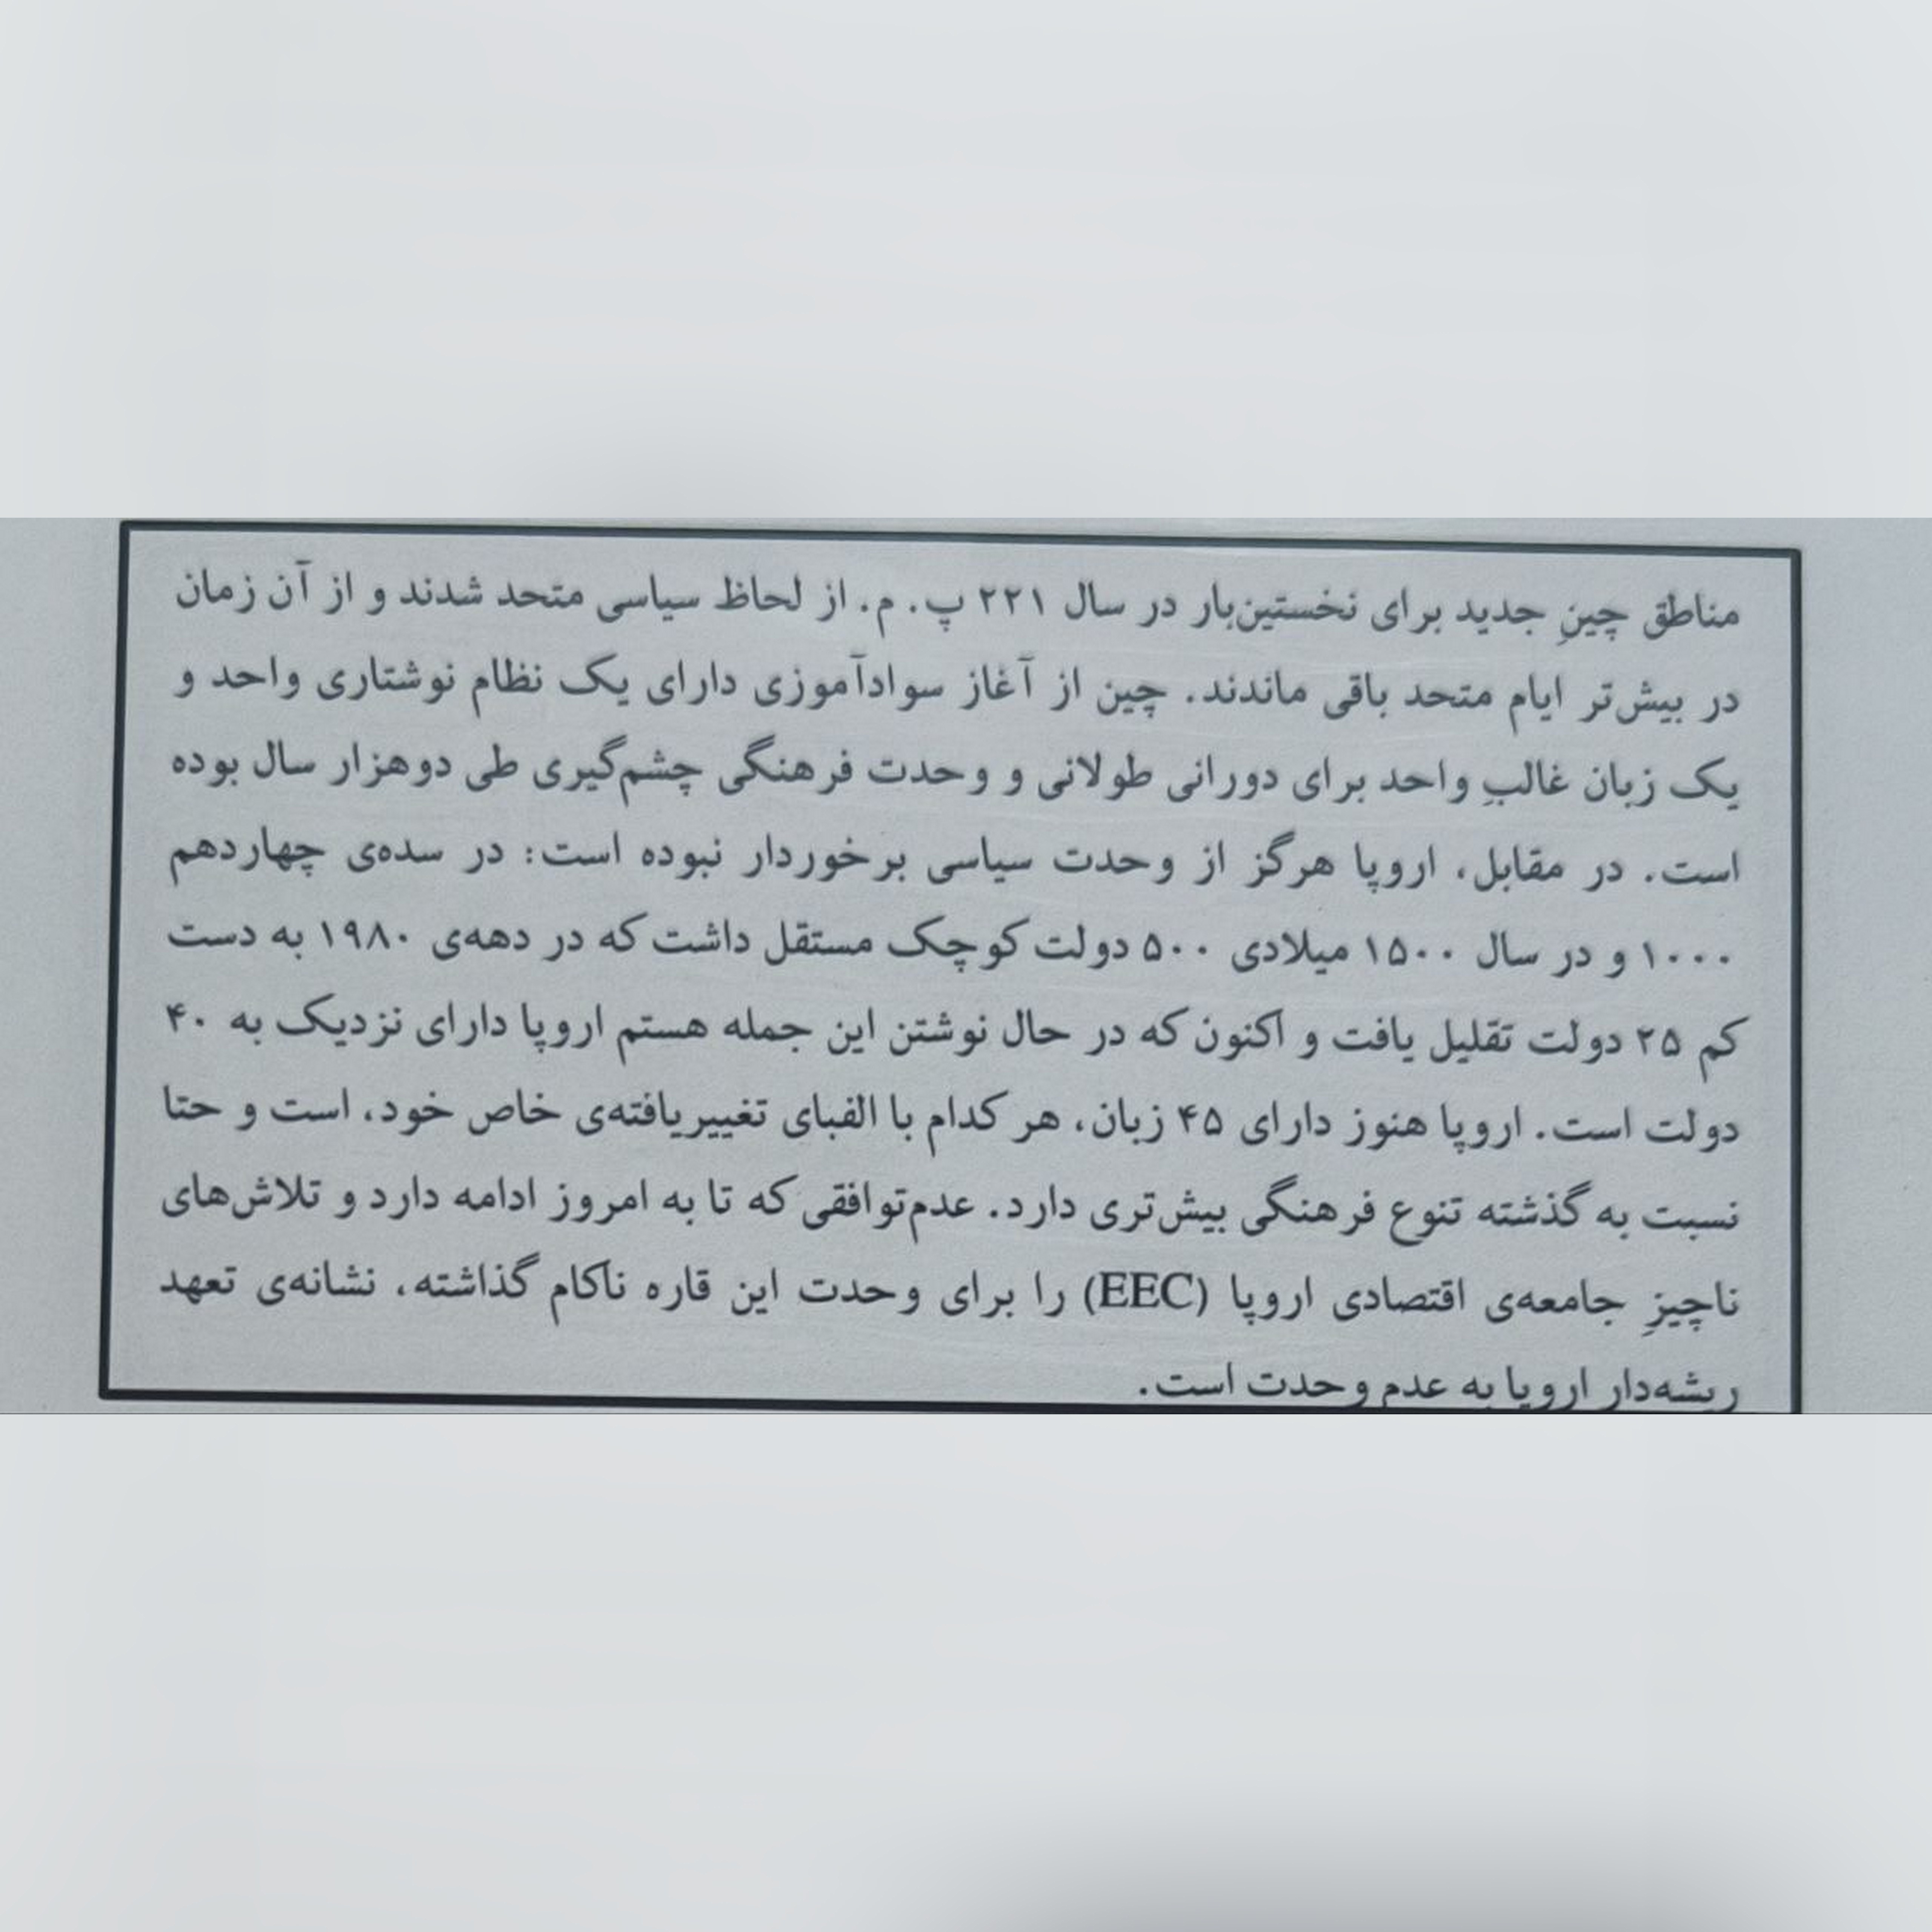 مناطق چینِ جدید برای نخستین‌بار در سال ۲۲۱ پ. م. از لحاظ سیاسی متحد شدند و از آن زمان
در بیش‌تر ایام متحد باقی ماندند. چین از آغاز سوادآموزی دارای یک نظام نوشتاری واحد و
یک زبان غالبِ واحد برای دورانی طولانی و وحدت فرهنگی چشم‌گیری طی دوهزار سال بوده
است. در مقابل، اروپا هرگز از وحدت سیاسی برخوردار نبوده است: در سده‌ی چهاردهم
۱۰۰۰ و در سال ۱۵۰۰ میلادی ۵۰۰ دولت کوچک مستقل داشت که در دهه‌ی ۱۹۸۰ به دست
کم ۲۵ دولت تقلیل یافت و اکنون که در حال نوشتن این جمله هستم اروپا دارای نزدیک به ۴۰
دولت است. اروپا هنوز دارای ۴۵ زبان، هر کدام با الفبای تغییریافته‌ی خاص خود، است و حتا
نسبت به گذشته تنوع فرهنگی بیش‌تری دارد. عدم‌توافقی که تا به امروز ادامه دارد و تلاش‌های
ناچیزِ جامعه‌ی اقتصادی اروپا (EEC) را برای وحدت این قاره ناکام گذاشته، نشانه‌ی تعهد
ریشه‌دار اروپا به عدم وحدت است.